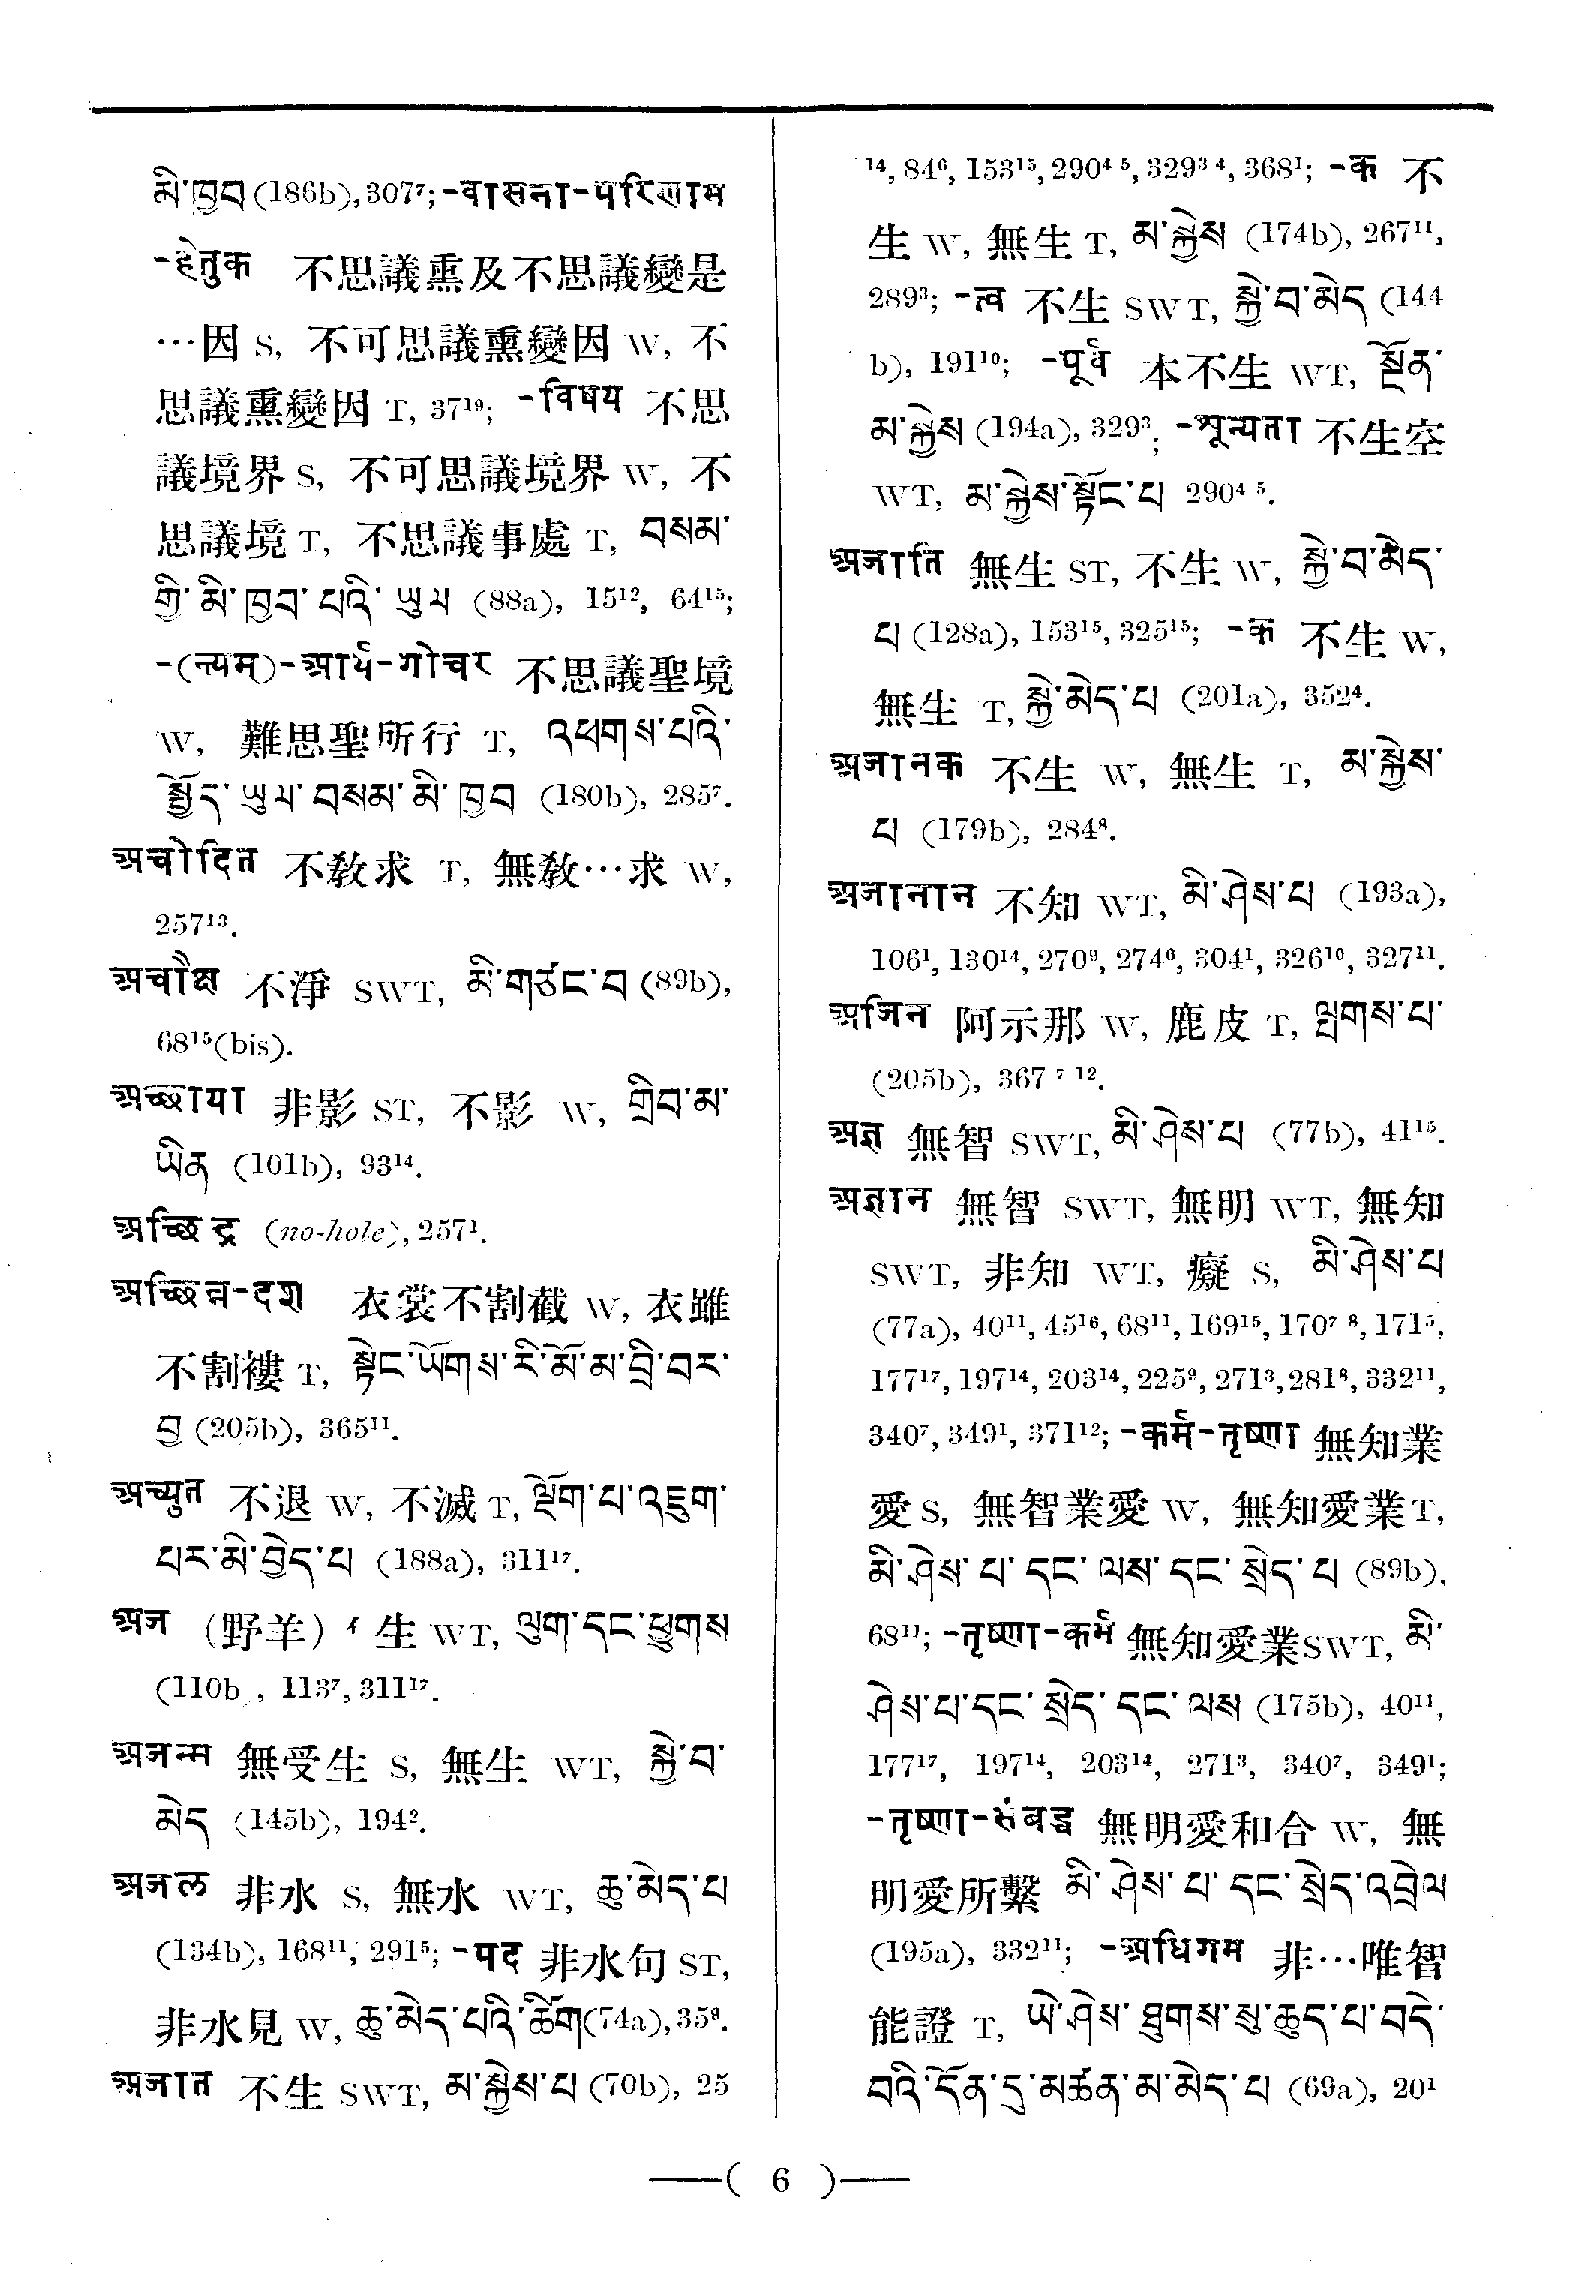 མི་ཁྱབ (186b), 307⁷; -वासना-परिणाम
-हेतुक 不思議熏及不思議變是
…因 S, 不可思議熏變因 W, 不
思議熏變因 T, 37¹⁹; -विषय 不思
議境界 S, 不可思議境界 W, 不
思議境 T, 不思議事處 T, བསམ་
གྱི་མི་ཁྱབ་པའི་ཡུལ (88a), 15¹², 64¹⁵;
-(न्यम्)-आर्य-गोचर 不思議聖境
W, 難思聖所行 T, འཕགས་པའི་
སྤྱོད་ཡུལ་བསམ་མི་ཁྱབ (180b), 285⁷.
अचोदित 不教求 T, 無教…求 W,
257¹³.
अचौक्ष 不淨 SWT, མི་གཙང་བ (89b),
68¹⁵(bis).
अच्छाया 非影 ST, 不影 W, གྲིབ་མ་
ཡིན (101b), 93¹⁴.
अच्छिद्र (no-hole), 257¹.
अच्छिन्न-दश 衣裳不割截 W, 衣雖
不割褸 T, སྟེང་ཡོགས་རི་མོ་མ་བྲི་བར་
བྱ (205b), 365¹¹.
अच्युत 不退 W, 不滅 T, ལྡོག་པ་འཇུག་
པར་མི་བྱེད་པ (188a), 311¹⁷.
अज (野羊) 生 WT, ལུག་དང་ཕྱུགས
(110b , 113⁷, 311¹⁷.
अजन्म 無受生 S, 無生 WT, སྐྱེ་བ་
མེད (145b), 194².
अजल 非水 S, 無水 WT, ཆུ་མེད་པ
(134b), 168¹¹, 291⁵; -पद 非水句 ST,
非水見 W, ཆུ་མེད་པའི་ཚིག (74a), 35⁸.
अजात 不生 SWT, མ་སྐྱེས་པ (70b), 25
¹⁴, 84⁶, 153¹⁵, 290⁴ ⁵, 329³ ⁴, 368¹; -क 不
生 W, 無生 T, མ་སྐྱེས (174b), 267¹¹,
289³; -त्व 不生 SWT, སྐྱེ་བ་མེད (144
b), 191¹⁰; -पूर्व 本不生 WT, སྔོན་
མ་སྐྱེས (194a), 329³; -शून्यता 不生空
WT, མ་སྐྱེས་སྟོང་པ 290⁴ ⁵.
अजाति 無生 ST, 不生 W, སྐྱེ་བ་མེད་
པ (128a), 153¹⁵, 325¹⁵; -क 不生 W,
無生 T, སྐྱེ་མེད་པ (201a), 352⁴.
अजानक 不生 W, 無生 T, མ་སྐྱེས་
པ (179b), 284⁸.
अजानान 不知 WT, མི་ཤེས་པ (193a),
106¹, 130¹⁴, 270⁹, 274⁶, 304¹, 326¹⁰, 327¹¹.
अजिन 阿示那 W, 鹿皮 T, ལྤགས་པ་
(205b), 367⁷ ¹².
अज्ञ 無智 SWT, མི་ཤེས་པ (77b), 41¹⁵.
अज्ञान 無智 SWT, 無明 WT, 無知
SWT, 非知 WT, 癡 S, མི་ཤེས་པ
(77a), 40¹¹, 45¹⁶, 68¹¹, 169¹⁵, 170⁷ ⁸, 171⁵,
177¹⁷, 197¹⁴, 203¹⁴, 225⁹, 271³, 281⁸, 332¹¹,
340⁷, 349¹, 371¹²; -कर्म-तृष्णा 無知業
愛 S, 無智業愛 W, 無知愛業 T,
མི་ཤེས་པ་དང་ལས་དང་སྲེད་པ (89b),
68¹¹; -तृष्णा-कर्म 無知愛業 SWT, མི་
ཤེས་པ་དང་སྲེད་དང་ལས (175b), 40¹¹,
177¹⁷, 197¹⁴, 203¹⁴, 271³, 340⁷, 349¹;
-तृष्णा-संबद्ध 無明愛和合 W, 無
明愛所繫 མི་ཤེས་པ་དང་སྲེད་འབྲེལ
(195a), 332¹¹; -अधिगम 非…唯智
能證 T, ཡེ་ཤེས་ཐུགས་སུ་ཆུད་པ་བདེ་
བའི་དོན་དུ་མཚན་མ་མེད་པ (69a), 20¹
—( 6 )—